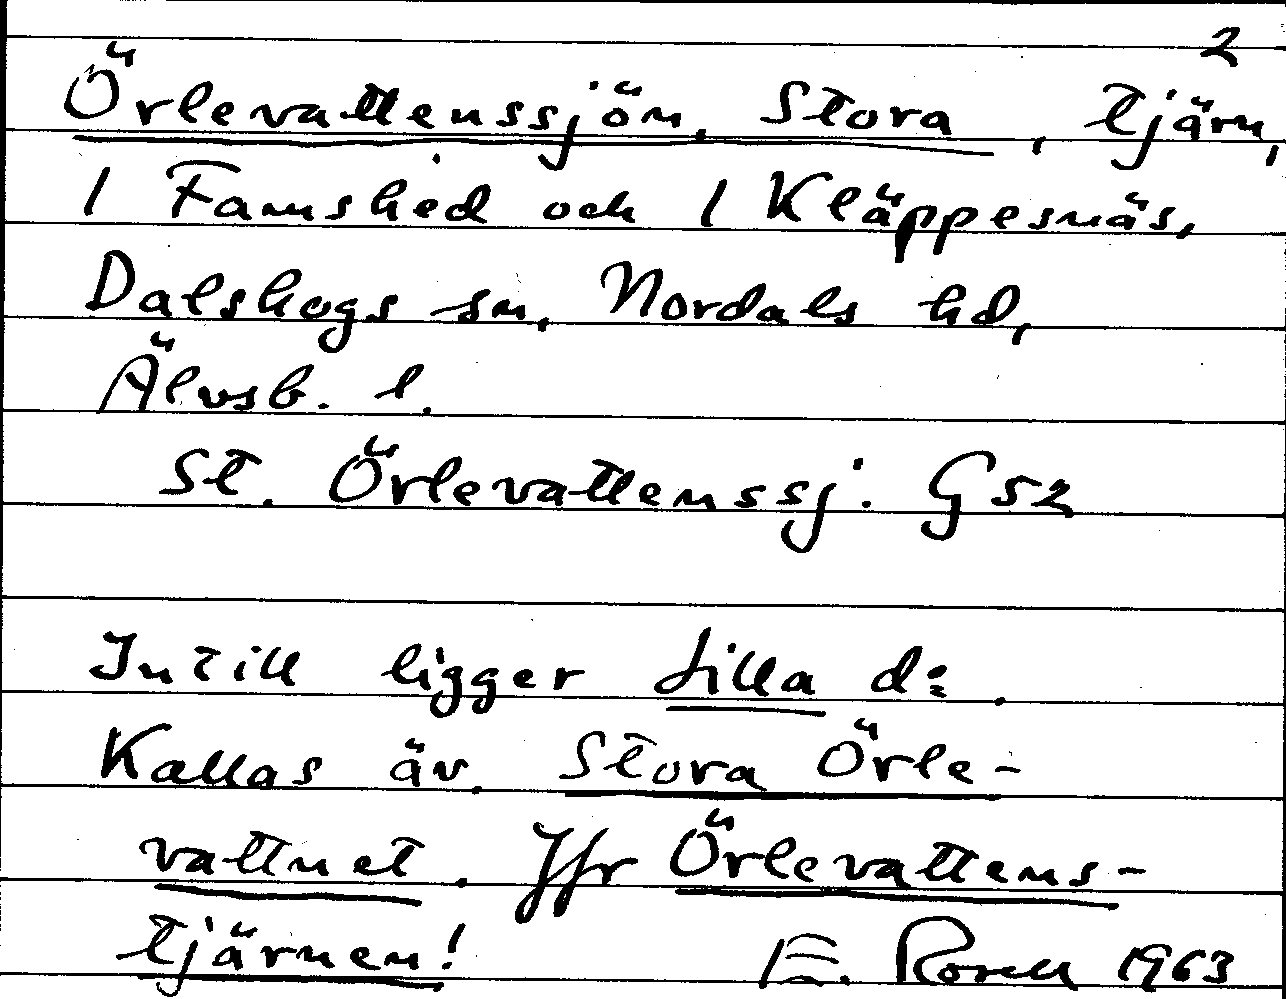 2
Örlevattenssjön, Stora, tjärn,
1 Famshed och 1 Kläppesnäs,
Dalskogs sn, Nordals hd,
Älvsb. l.
St. Örlevattenssj. G52
Intill ligger Lilla d:o.
Kallas äv. Stora Örle-
vattnet. Jfr Örlevattens-
tjärnen! E. Rosell 1963